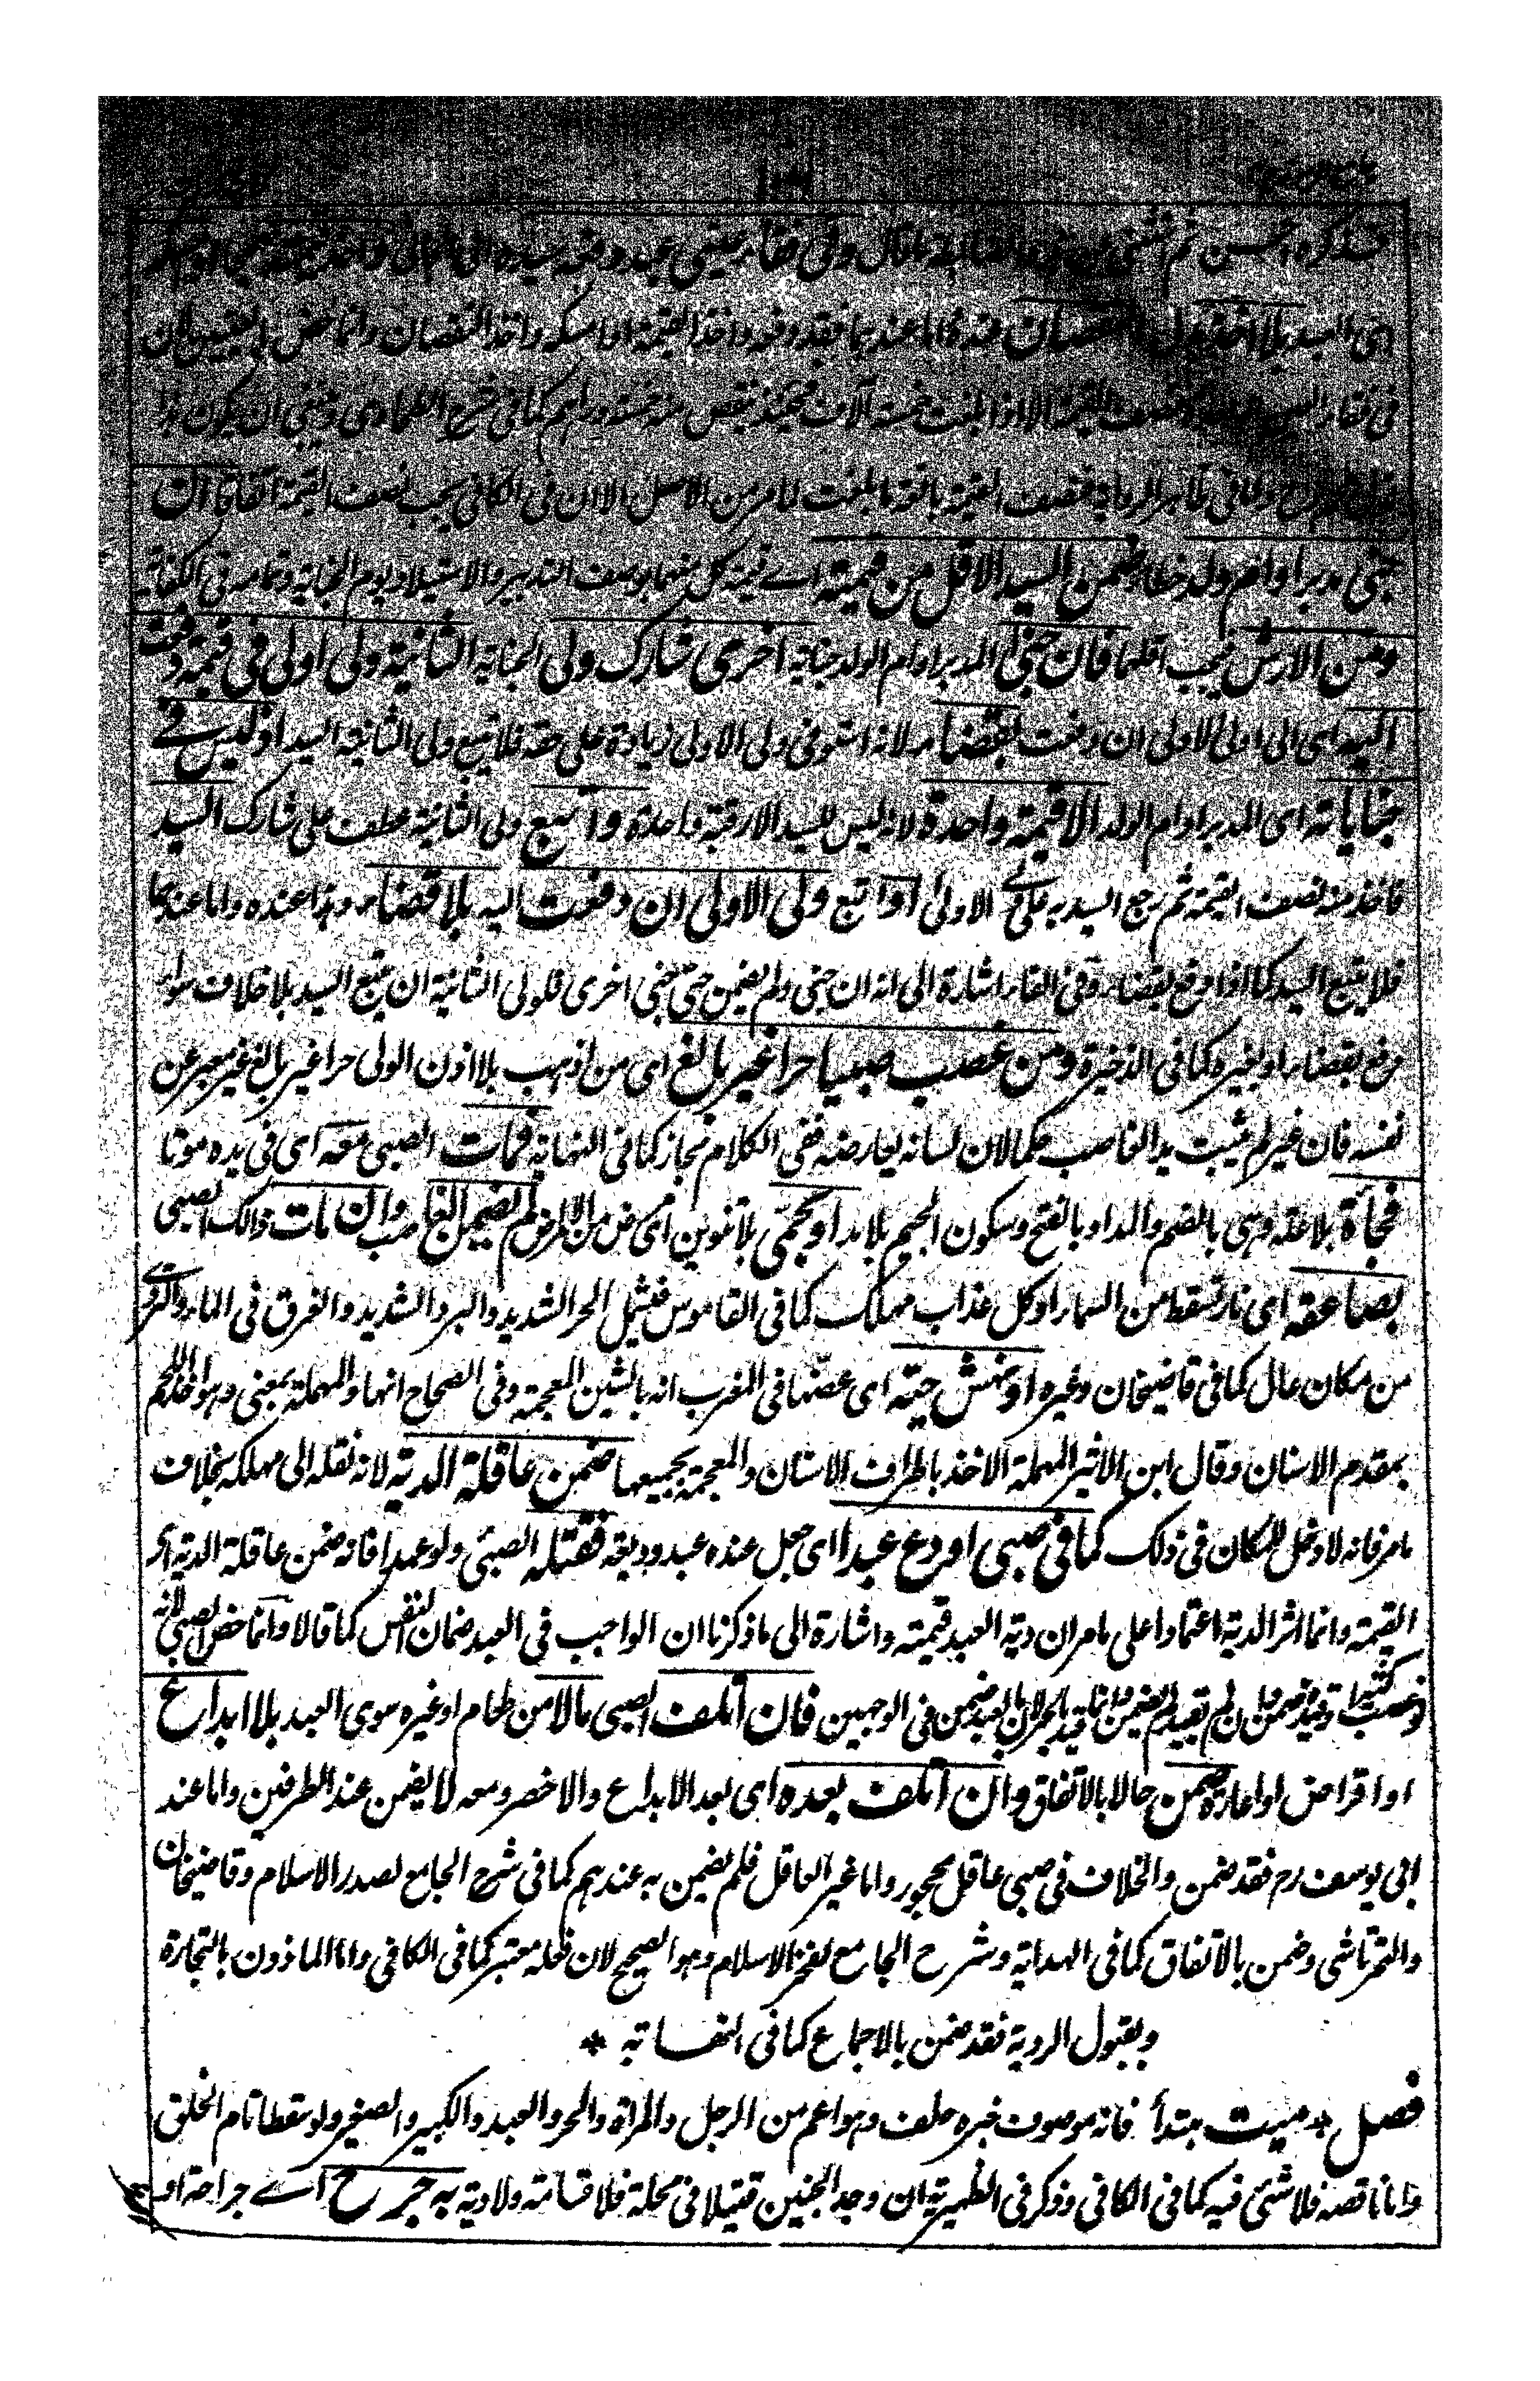 فذكره احسن ثم
اى السيد بلا اخذ النقصان عنده واما عندهما فقد دفعه واخذ القيمة او امسكه واخذ النقصان وانما خص العينين لان
فى فقاء نصف القيمة الا اذا بلغت خمسة آلاف فحينئذ ينقص منه خمسة دراهم كما فى شرح الطحاوى وينبغى ان يكون هذا
واما فى ظاهر الرواية فنصف القيمة بالغة ما بلغت لما مر من الاصل الا ان فى الكافى يجب نصف القيمة اتفاقا ان
جنى مدبر او ام ولد خطاء ضمن السيد الاقل من قيمته اے قيمة كل منهما بوصف التدبير والاستيلاد يوم الجناية وتمامه فى الكفاية
ومن الارش فيجب اقلهما فان جنى المدبر او ام الولد جناية اخرى شارك ولى الجناية الثانية ولى اولى فى قيمة دفعت
اليه اى الى ولى الاولى ان دفعت بقضاء لانه استوفى ولى الاولى زيادة على حقه فلا يتبع ولى الثانية السيد اذ ليس فے
جناياته اى المدبر او ام الولد الا قيمة واحدة لانه ليس للسيد الا رقبة واحدة واتبع ولى الثانية عطف على شارك السيد
فاخذ منه نصف القيمة ثم رجع السيد به على الاولى او اتبع ولى الاولى ان دفعت اليه بلا قضاء وهذا عنده واما عندهما
فلا يتبع السيد كما اذا دفع بقضاء وفى الفاء اشارة الى انه ان جنى ولم يضمن حتى جنى اخرى فلولى الثانية ان يتبع السيد بلا خلاف سواء
دفع بقضاء او بغيره كما فى الذخيرة ومن غصب صبيا حرا غير بالغ اى من اذهب بلا اذن الولى حرا غير بالغ غير معبر عن
نفسه فان غيره لم يثبت يد الغاصب حكما لان لسانه يعارضه ففى الكلام تجاز كما فى النهاية فمات الصبى معه اى فى يده موتا
فجأة بلا علة وهى بالضم والمد او بالفتح وسكون الجيم بلا مد او بحمّى بلا تنوين اى مرض من الامراض لم يضمن الغاصب وان مات ذلك الصبى
بصاعقة اى نار تسقط من السماء او كل عذاب مهلك كما فى القاموس فيشمل الحر الشديد والبرد الشديد والغرق فى الماء والتردے
من مكان عال كما فى قاضيخان وغيره او نهش حية اى عضها فى المغرب انه بالشين المعجمة وفى الصحاح انها والمهملة بمعنى وهو اخذ اللحم
بمقدم الاسنان وقال ابن الاثير المهملة الاخذ باطراف الاسنان والمعجمة بجميعها ضمن عاقلة الدية لانه نقله الى مهلكه بخلاف
ما مر فانه لا دخل للمكان فى ذلك كما فى صبى اودع عبدا اى جعل عنده عبد وديعة فقتله الصبى ولو عمدا فانه ضمن عاقلة الدية اى
القيمة وانما اثر الدية اعتمادا على ما مر ان دية العبد قيمته واشارة الى ما ذكرنا ان الواجب فى العبد ضمان النفس كما قالا وانما خص الصبى لانه
فى الوجهين فان اتلف الصبى مالا من طعام او غيره سوى العبد بلا ايداع
او اقراض او اعارة ضمن حالا بالاتفاق وان اتلف بعده اى بعد الايداع والاخصر ومعه لا يضمن عند الطرفين واما عند
ابى يوسف رح فقد ضمن والخلاف فى صبى عاقل محجور واما غير العاقل فلم يضمن به عندهم كما فى شرح الجامع لصدر الاسلام وقاضيخان
والتمرتاشى وضمن بالاتفاق كما فى الهداية وشرح الجامع لفخر الاسلام وهو الصحيح لان فعله معتبر كما فى الكافى واما الماذون بالتجارة
وبقبول الوديعة فقد ضمن بالاجماع كما فى النهاية *
فصل * ميت مبتدأ فانه موصوف خبره حلف وهو اعم من الرجل والمراة والحر والعبد والكبير والصغير ولو سقطا تام الخلق
واما ناقصه فلا شئ فيه كما فى الكافى وذكر فى الظهيرية ان وجد الجنين قتيلا فى محلة فلا قسامة ولا دية به جرح اے جراحة او